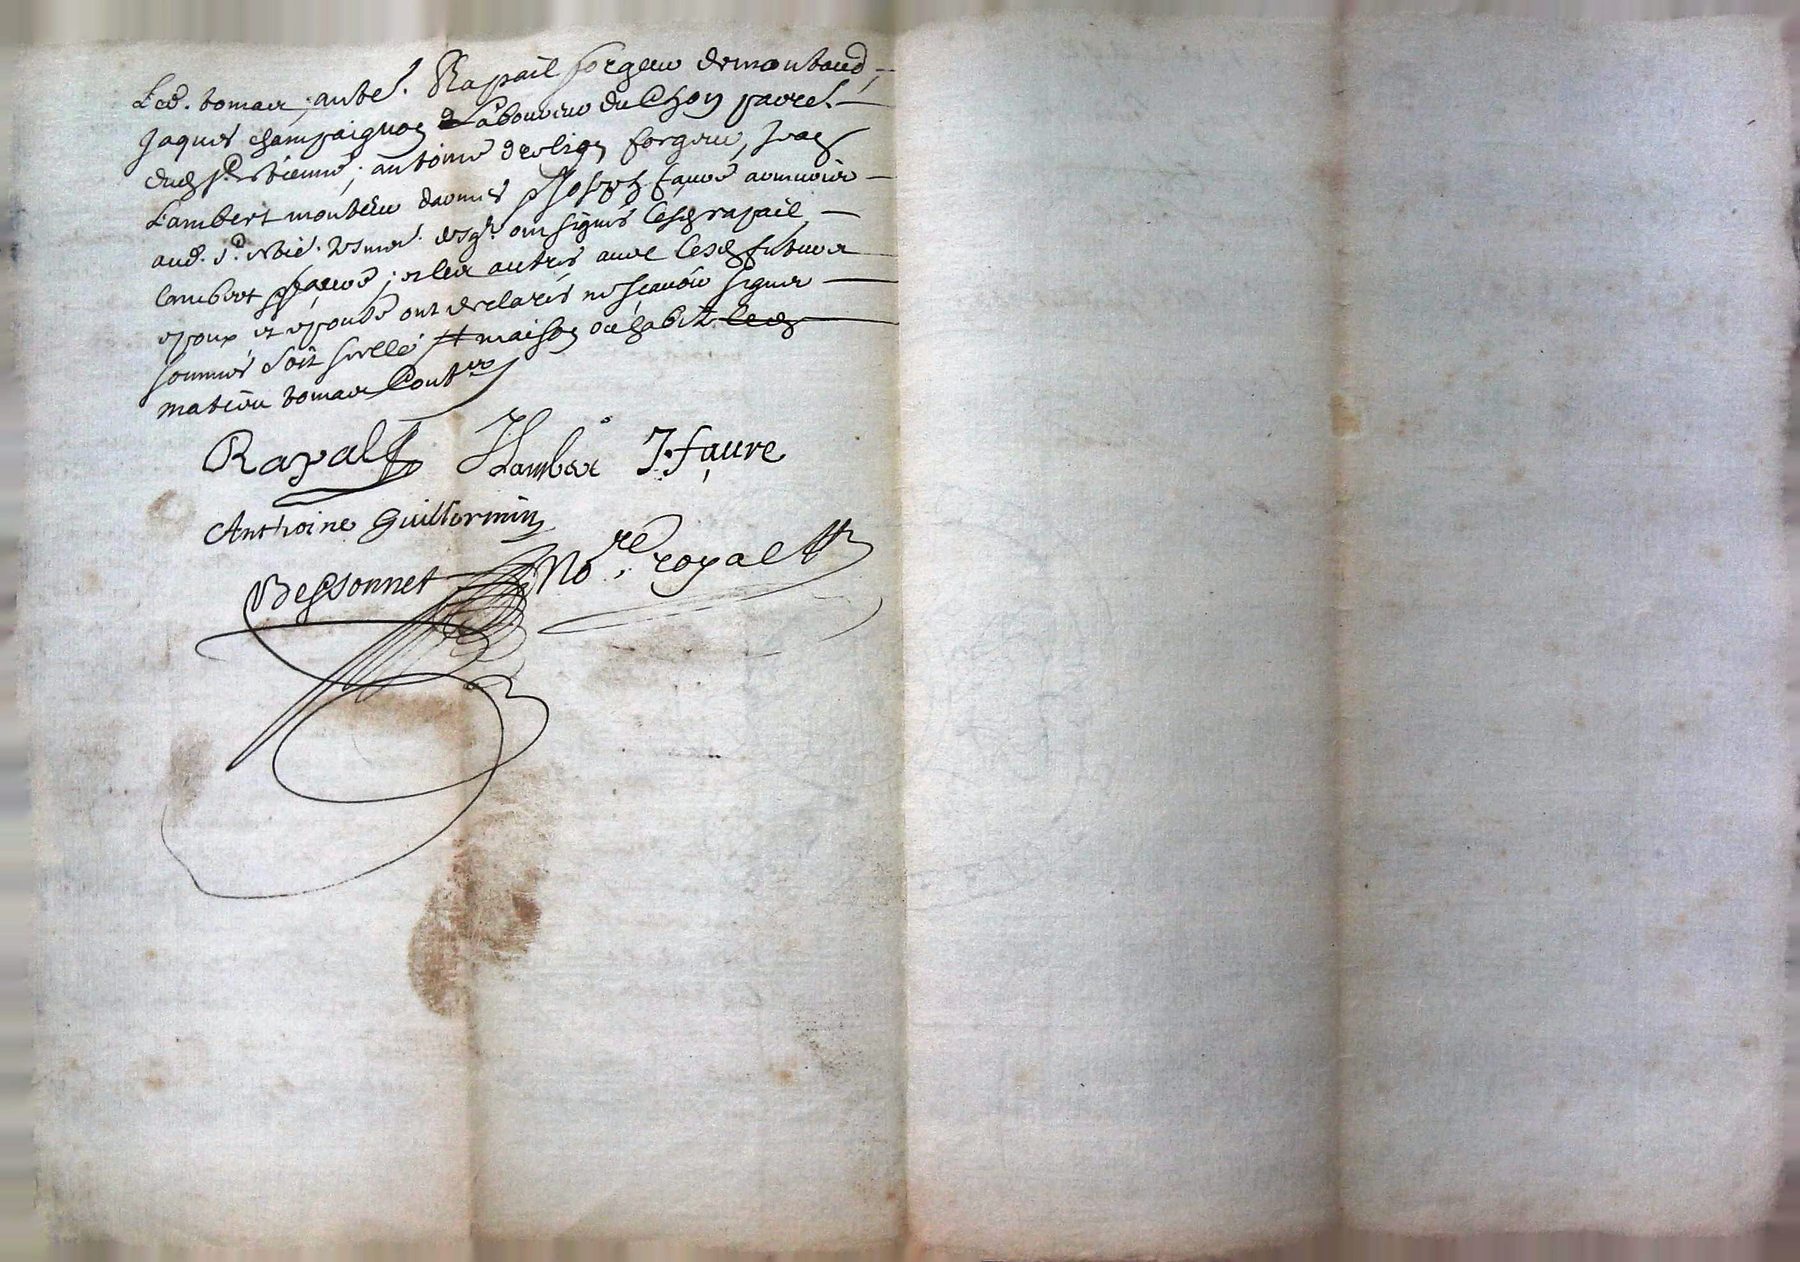 Led. tomas, ante. Rapail forgeur demontaud,
Jaques champaignon Laboureur du Chon parrel.
dud St. estienne; antoine drolign forgeur, Jean
Lambert monteur darmes & Joseph faure armurier
aud. St. etie. tesmo. desg. on signés lesd rapail,
lambert & faure; et les autres avec lesd futurs
epoux et epouse ont declarés ne scavoir signer
sommes soit scellé # maison ou habite led
matieu tomas Contror
Rapail Jlambér J. faure
Anthoine Guillermin
Bessonnet No.re royal